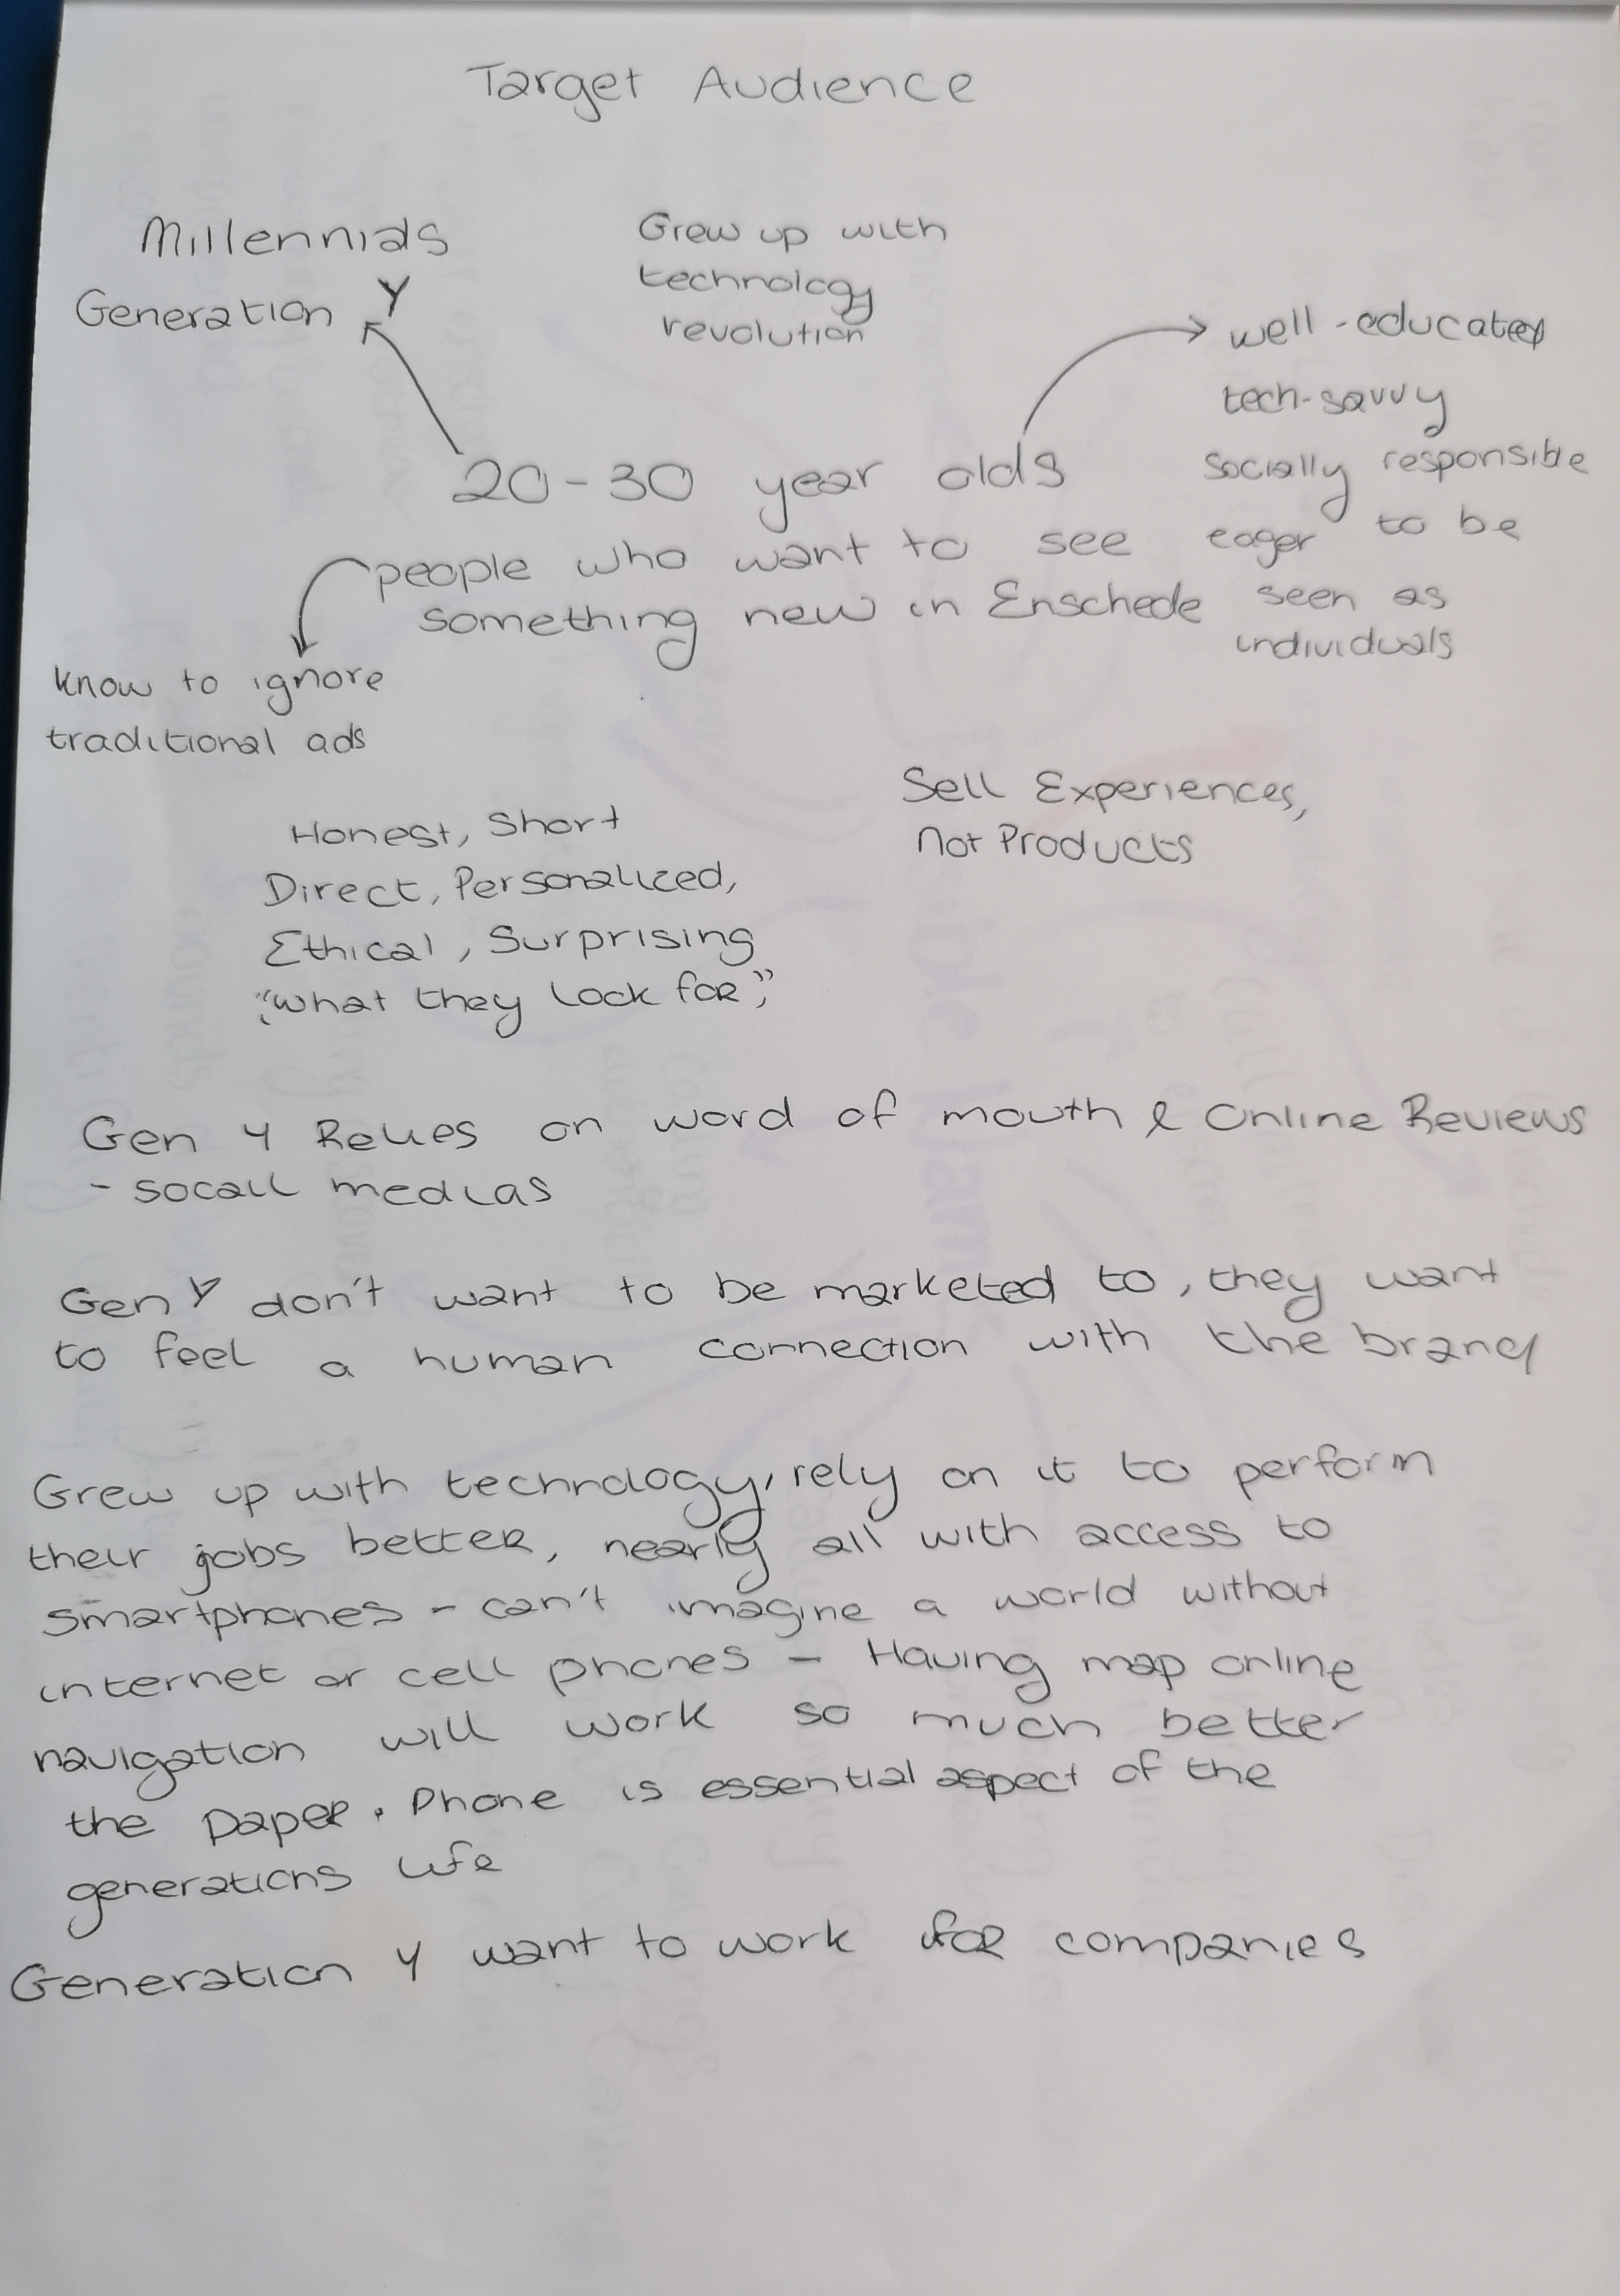 Target Audience
Millennials
Generation Y
Grew up with
technology
revolution
well-educated
tech-savvy
socially responsible
eager to be
seen as
individuals
20-30 year olds
people who want to see
something new in Enschede
know to ignore
traditional ads
Sell Experiences,
Not Products
Honest, Short
Direct, Personalized,
Ethical, Surprising
"what they look for"
Gen Y Relies on word of mouth & Online Reviews
- socail medias
Gen Y don't want to be marketed to, they want
to feel a human connection with the brand
Grew up with technology, rely on it to perform
their jobs better, nearly all with access to
smartphones - can't imagine a world without
internet or cell phones - Having map online
navigation will work so much better
the paper. Phone is essential aspect of the
generations life
Generation Y want to work for companies